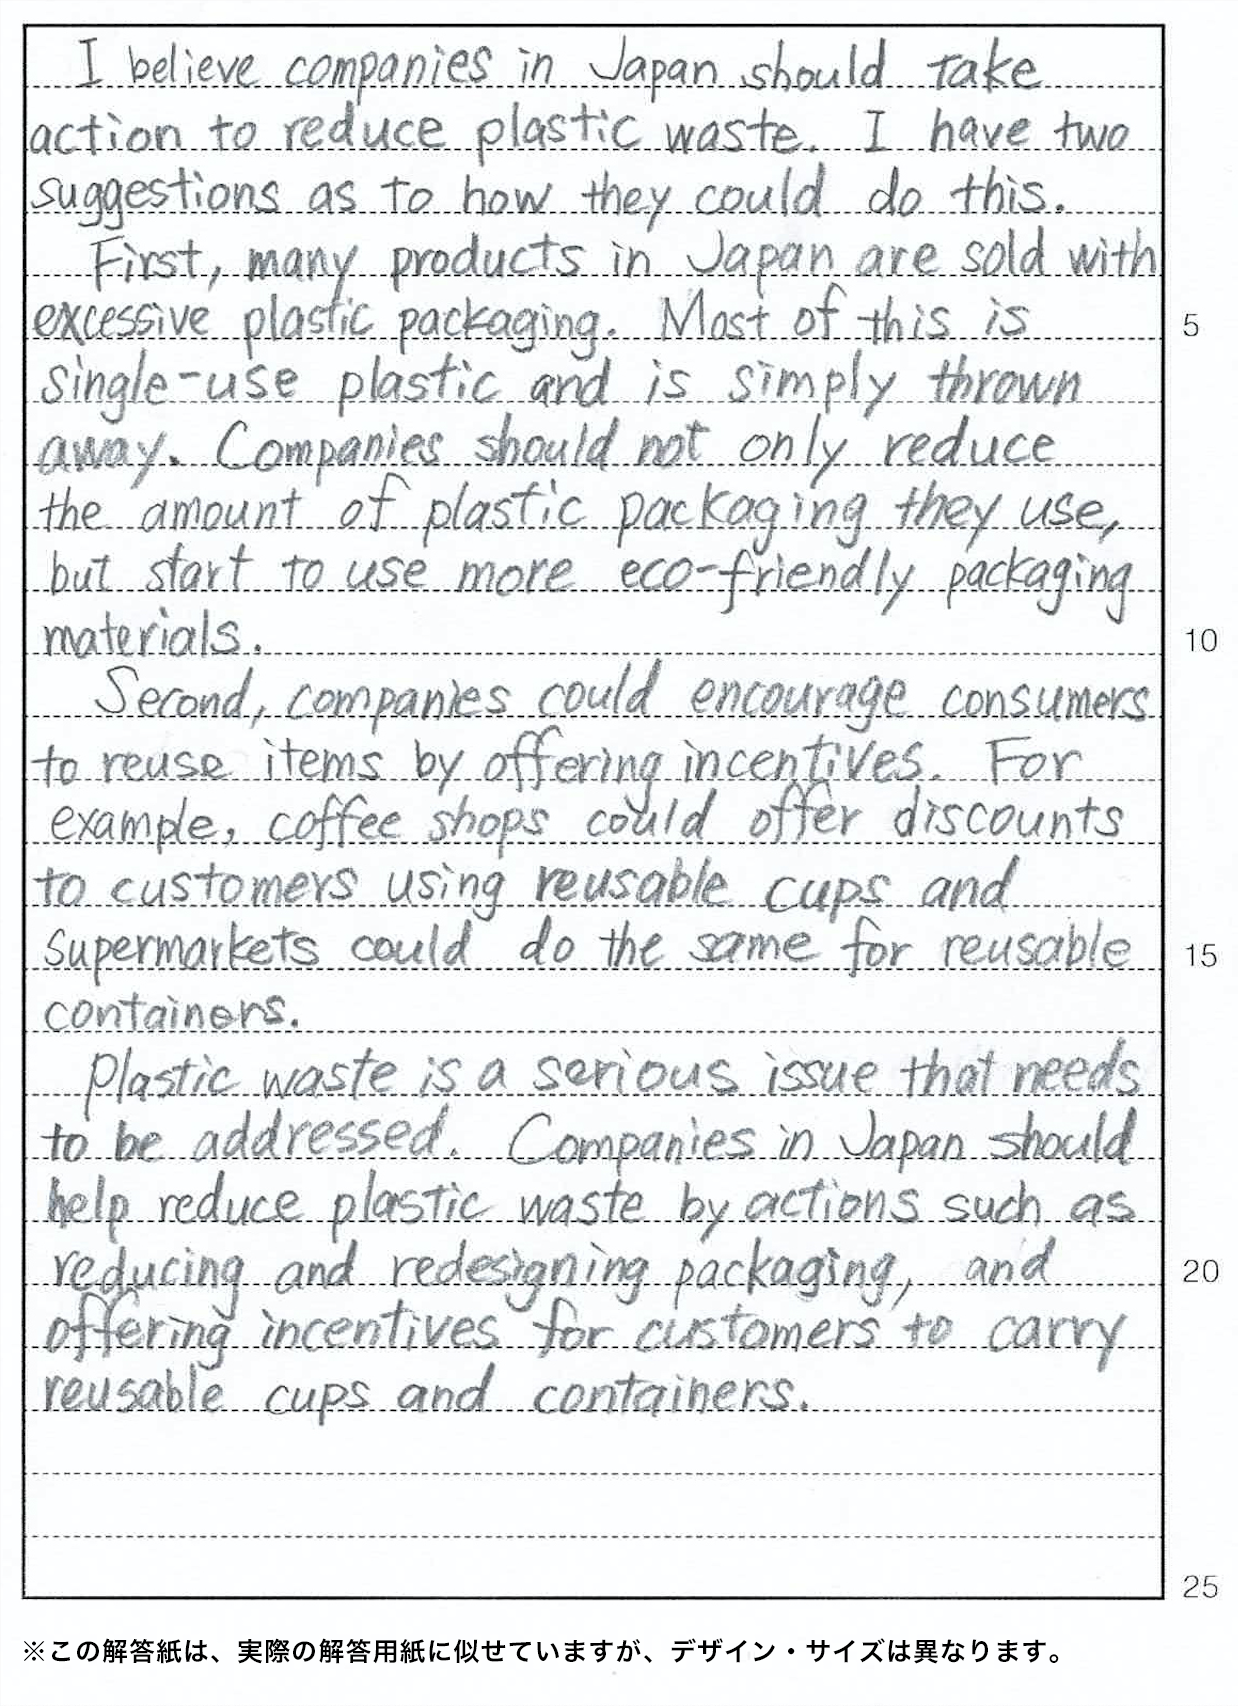 I believe companies in Japan should take
action to reduce plastic waste. I have two
suggestions as to how they could do this.
First, many products in Japan are sold with
excessive plastic packaging. Most of this is
5
single-use plastic and is simply thrown
away. Companies should not only reduce
the amount of plastic packaging they use,
but start to use more eco-friendly packaging
materials.
10
Second, companies could encourage consumers
to reuse items by offering incentives. For
example, coffee shops could offer discounts
to customers using reusable cups and
supermarkets could do the same for reusable
15
containers.
Plastic waste is a serious issue that needs
to be addressed. Companies in Japan should
help reduce plastic waste by actions such as
reducing and redesigning packaging, and
20
offering incentives for customers to carry
reusable cups and containers.
25
※この解答紙は、実際の解答用紙に似せていますが、デザイン・サイズは異なります。